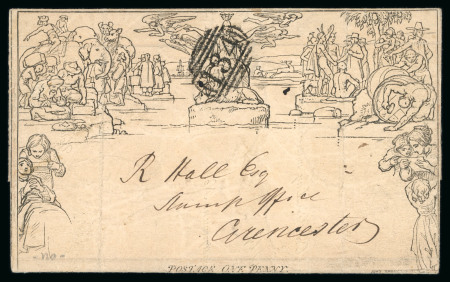 134
R Hall Esq
Stamp Office
Cirencester
POSTAGE ONE PENNY.